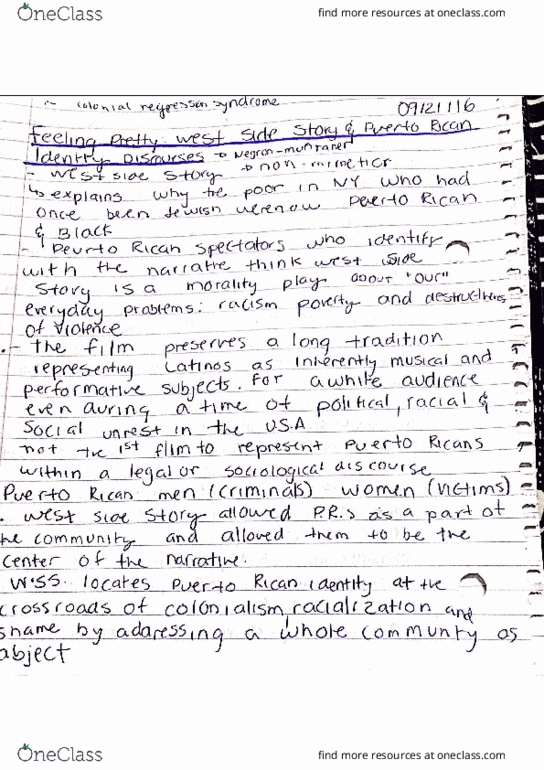 OneClass
find more resources at oneclass.com
:- colonial regression syndrome
09/21/16
Feeling Pretty: west side story & Puerto Rican
Identity Discourses → Negron-muntaner
- West side Story → non-mimetic
↳ explains why the poor in NY who had
once been Jewish were now Puerto Rican
& Black
- Peurto Rican spectators who identify
with the narrative think west side
Story is a morality play about "our"
everyday problems: racism poverty and destructiveness
of violence
- the film preserves a long tradition
representing Latinos as inherently musical and
performative subjects. for a white audience
even during a time of political, racial &
social unrest in the U.S.A
not the 1st flim to represent Puerto Ricans
within a legal or sociological discourse
Puerto Rican men (criminals) women (victims)
. West side Story allowed P.R.s as a part of
the community and allowed them to be the
center of the narrative.
W.S.S. locates Puerto Rican identity at the
crossroads of colonialism, racialization and
shame by addressing a whole community as
abject
OneClass
find more resources at oneclass.com